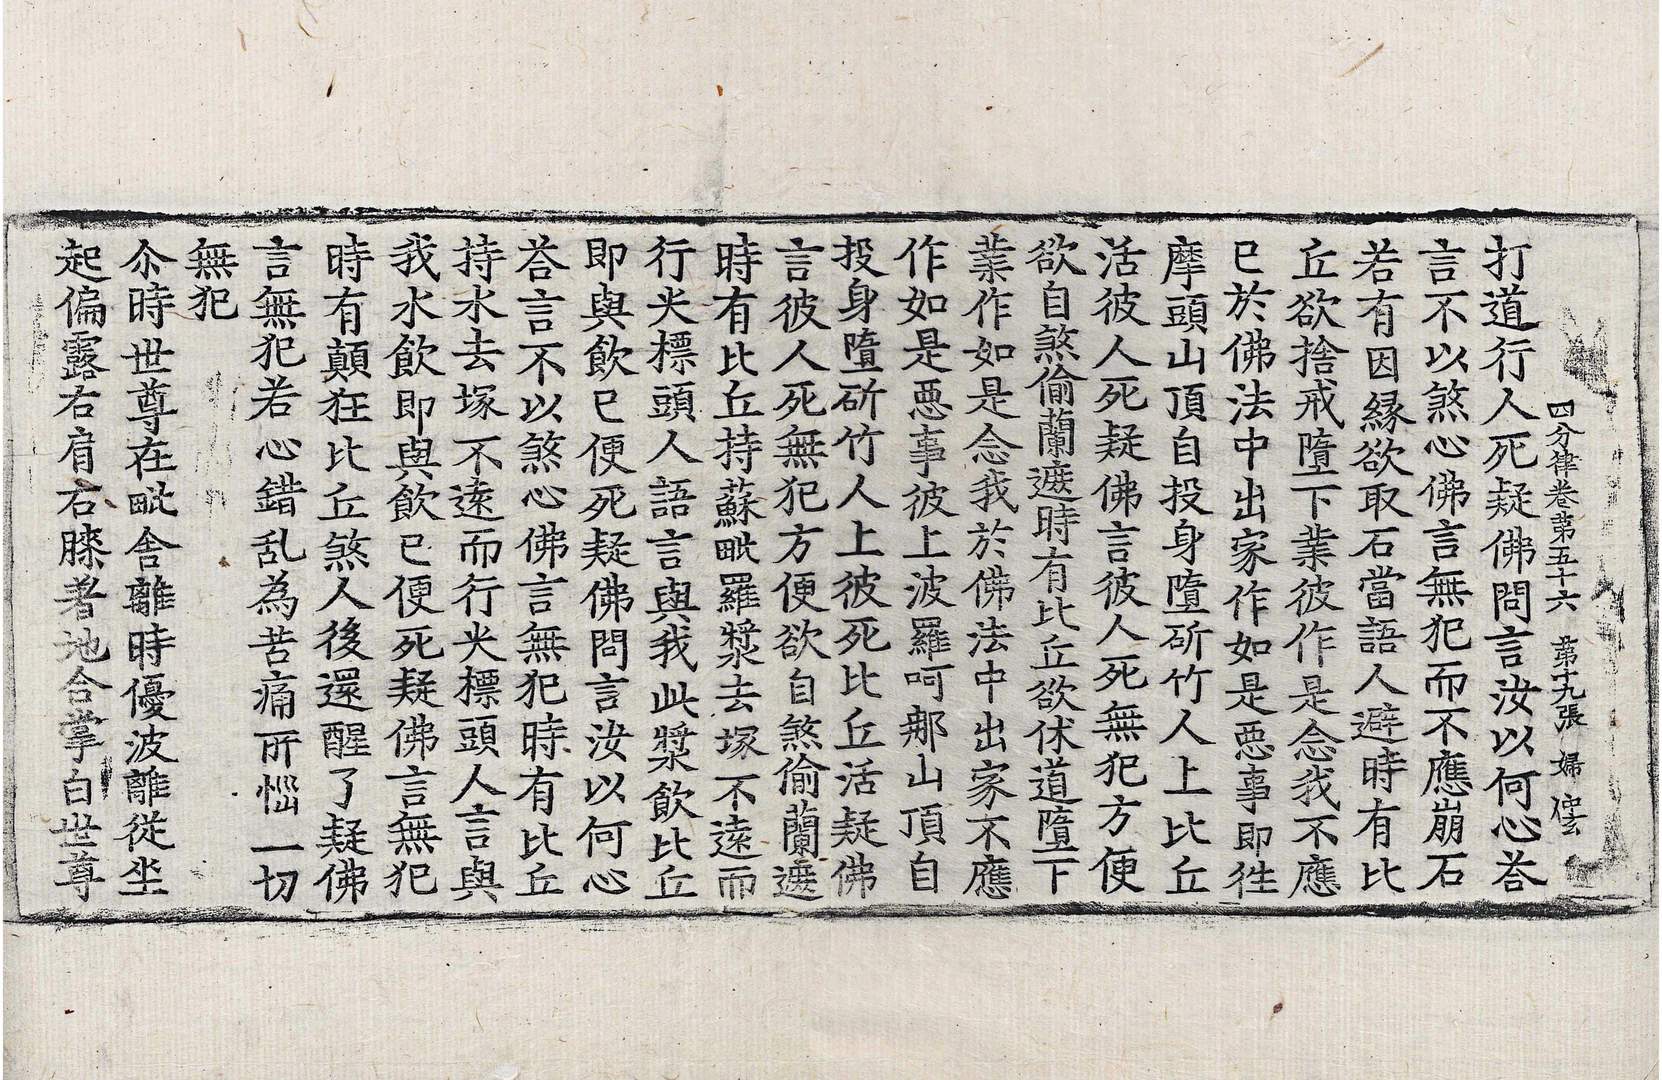 四分律卷第五十六 第十九張 婦
打道行人死疑佛問言汝以何心荅
言不以煞心佛言無犯而不應崩石
若有因縁欲取石當語人避時有比
丘欲捨戒墮下業彼作是念我不應
已於佛法中出家作如是惡事即徃
摩頭山頂自投身墮斫竹人上比丘
活彼人死疑佛言彼人死無犯方便
欲自煞偷蘭遮時有比丘欲休道墮下
業作如是念我於佛法中出家不應
作如是惡事彼上波羅呵那山頂自
投身墮斫竹人上彼死比丘活疑佛
言彼人死無犯方便欲自煞偷蘭遮
時有比丘持蘇毗羅漿去塚不遠而
行尖標頭人語言與我此漿飲比丘
即與飲已便死疑佛問言汝以何心
荅言不以煞心佛言無犯時有比丘
持水去塚不遠而行尖標頭人言與
我水飲即與飲已便死疑佛言無犯
時有顛狂比丘煞人後還醒了疑佛
言無犯若心錯乱為苦痛所惱一切
無犯
尒時世尊在毗舍離時優波離從坐
起偏露右肩右膝著地合掌白世尊